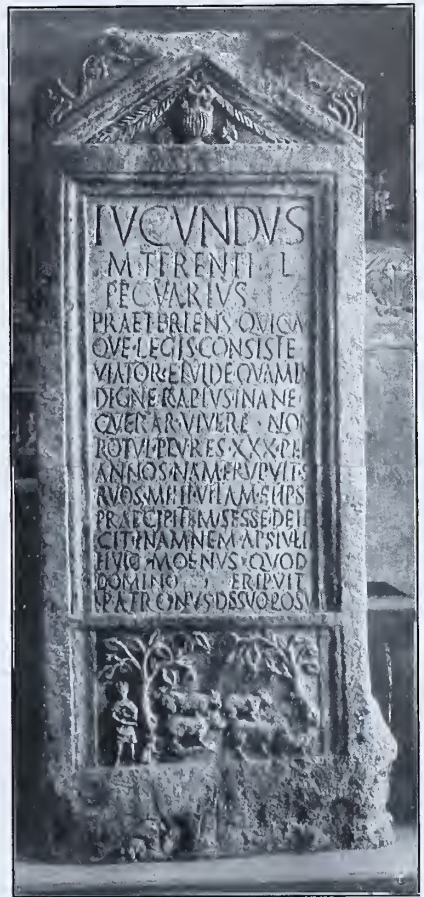 IVCVNDVS
M TERENTI L
PECVARIVS
PRAETERIENS QVICVM
QVE·LEGIS CONSISTE
VIATOR·ET VIDE QVAM
INDIGNE RAPTVS INANE
QVERAR·VIVERE·NON
POTVI PLVRES·XXX·PER
ANNOS·NAM ERVPVIT SE
RVOS·MIHI VITAM·ET IPSE
PRAECIPITEM SESSE DEIE
CIT
HVIC·MOENVS·QVOD
DOMINO ERIPVIT
PATRONVS DE SVO POSVIT